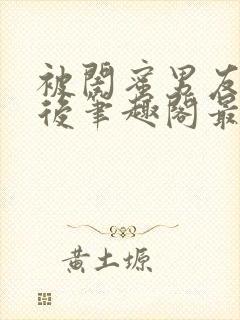 被闺蜜男友
後笔趣阁最
黄土塬